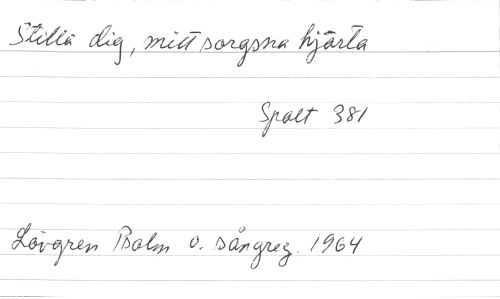 Stilla dig, mitt sorgsna hjärta
Spalt 381
Lövgren Psalm o. sångreg. 1964